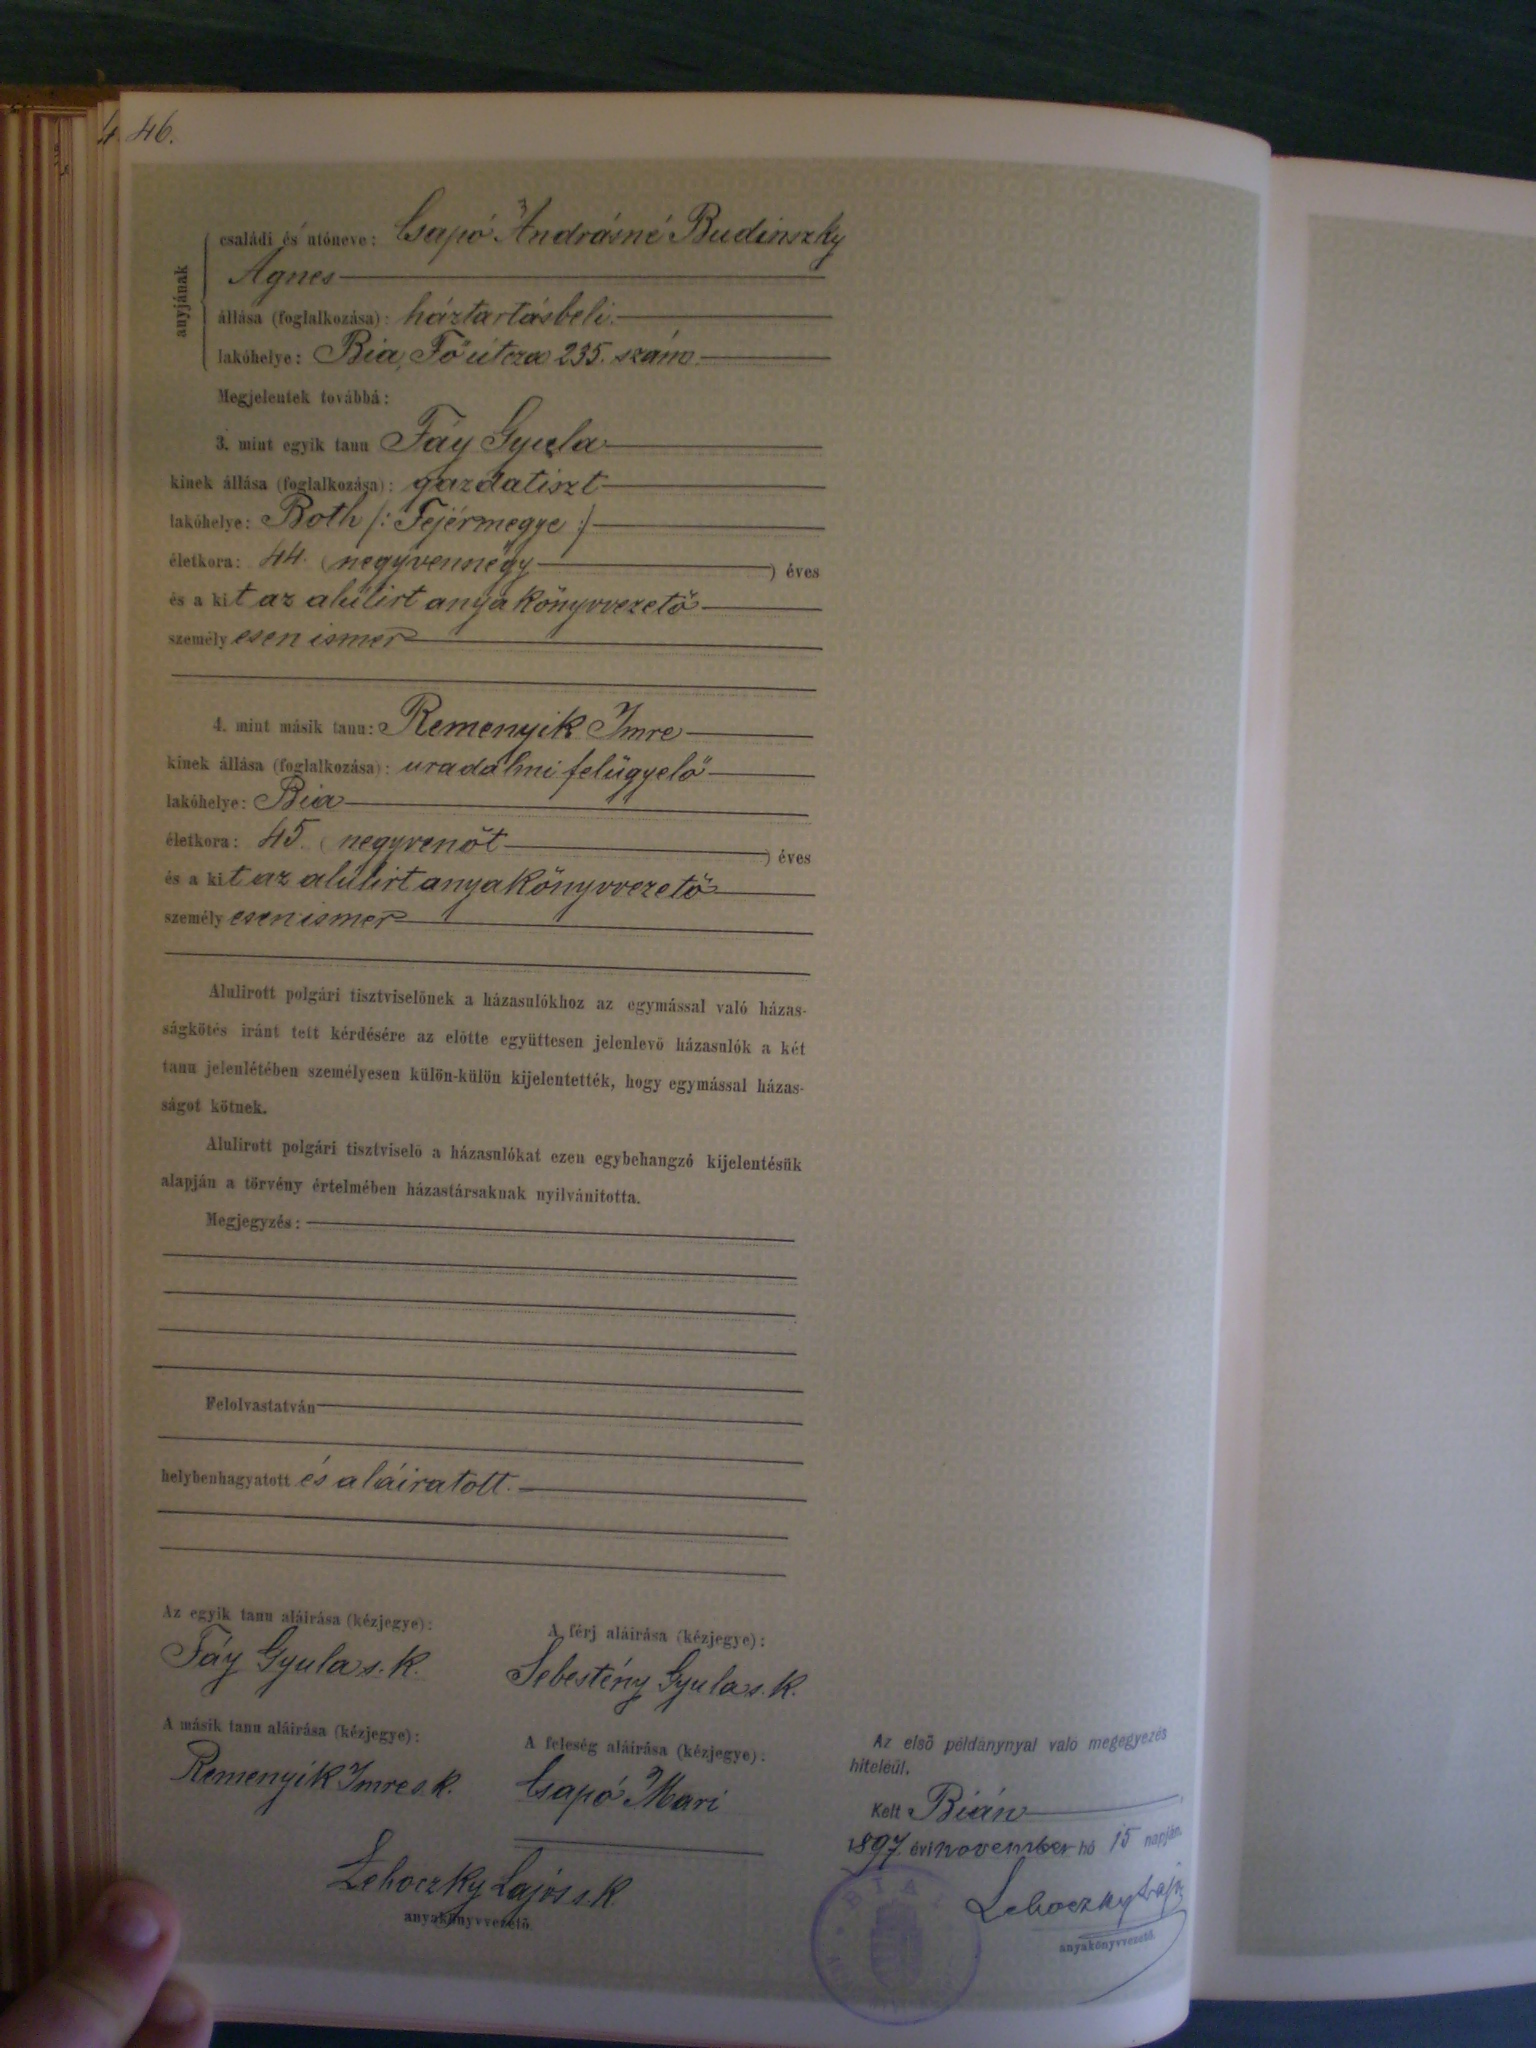 46.
anyjának
családi és utóneve: Csapó Andrásné Budinszky
Ágnes
állása (foglalkozása): háztartásbeli.
lakóhelye: Bia, Fő útcza 235. szám.
Megjelentek továbbá:
3. mint egyik tanu Fáy Gyula
kinek állása (foglalkozása): gazdatiszt
lakóhelye: Both /: Fejérmegye :/
életkora: 44. (negyvennégy) éves
és a kit az alúlirt anyakönyvvezető
személyesen ismer
4. mint másik tanu: Remenyik Imre
kinek állása (foglalkozása): uradalmi felügyelő
lakóhelye: Bia
életkora: 45. (negyvenöt) éves
és a kit az alúlirt anyakönyvvezető
személyesen ismer
Alulirott polgári tisztviselőnek a házasulókhoz az egymással való házas-
ságkötés iránt tett kérdésére az előtte együttesen jelenlevő házasulók a két
tanu jelenlétében személyesen külön-külön kijelentették, hogy egymással házas-
ságot kötnek.
Alulirott polgári tisztviselő a házasulókat ezen egybehangzó kijelentésük
alapján a törvény értelmében házastársaknak nyilvánitotta.
Megjegyzés:
Felolvastatván
helybenhagyatott és aláiratott.
Az egyik tanu aláirása (kézjegye):
Fáy Gyula s. k.
A férj aláirása (kézjegye):
Sebestény Gyula s. k.
A másik tanu aláirása (kézjegye):
Remenyik Imre s. k.
A feleség aláirása (kézjegye):
Csapó Mari
Lehoczky Lajos s. k.
anyakönyvvezető
Az első példánynyal való megegyezés
hiteléül.
Kelt Bián
1897. évi november hó 15 napján.
Lehoczky Lajos
anyakönyvvezető.
BIA